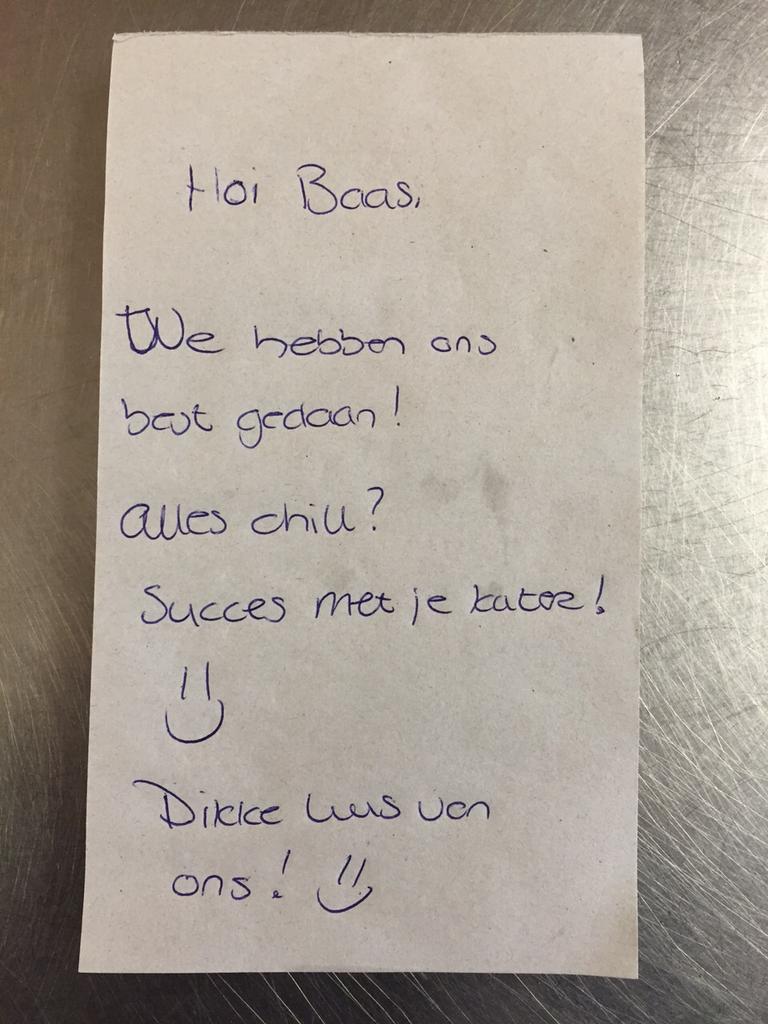 Hoi Baas,
We hebben ons
best gedaan!
Alles chill?
Succes met je kater!
Dikke kus van
ons!